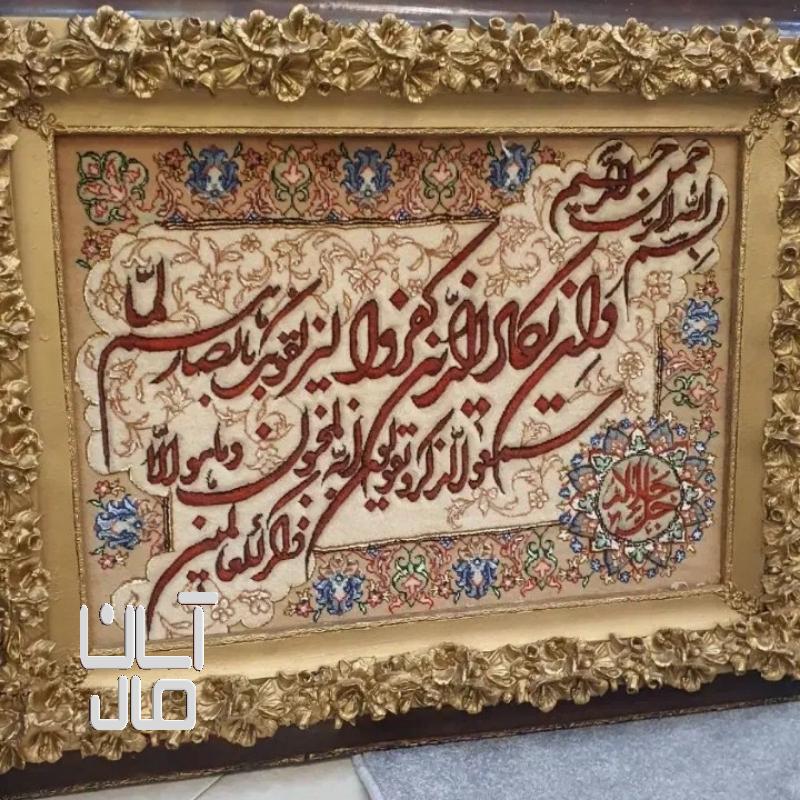 بسم الله الرحمن الرحیم
وان یکاد الذین کفروا لیزلقونک بابصارهم لما
سمعوا الذکر و یقولون انه لمجنون و ما هو الا
ذکر للعالمین
جل جلاله
آسان
مال